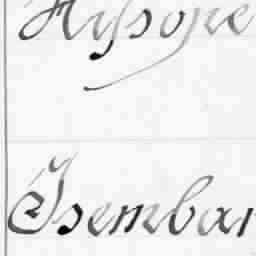 Hysope
Isembar